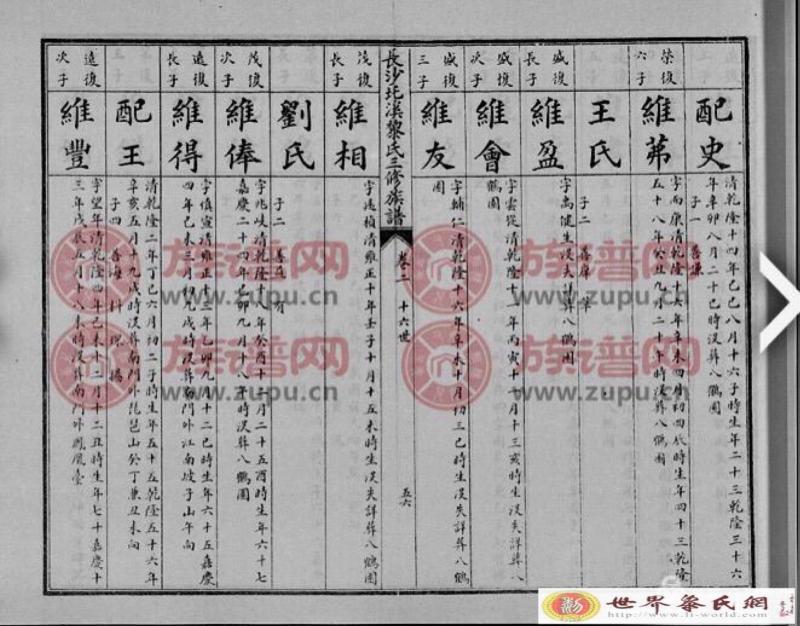 配史
清乾隆十四年己巳八月十六子時生年二十三乾隆三十六
年辛卯八月二十巳時沒葬八鶴園
子一 善謙
榮復
六子
維茀
字南康清乾隆十六年辛未四月初四辰時生年四十三乾隆
五十八年癸丑九月二十午時沒葬八鶴園
王氏
子二 善庠
盛復
長子
維盈
字禹健生沒失詳葬八鶴園
盛復
次子
維會
字雲從清乾隆十一年丙寅十一月十三亥時生沒失詳葬八
鶴園
盛復
三子
維友
字輔仁清乾隆十六年辛未十月初三巳時生沒失詳葬八鶴
園
長沙圫溪黎氏三修族譜
卷二 十六世
五六
茂復
長子
維相
字兆楨清雍正十年壬子十月十五未時生沒失詳葬八鶴園
劉氏
子二 善
茂復
次子
維俸
字兆岐清乾隆十八年癸酉十二月二十五酉時生年六十七
嘉慶二十四年己卯九月十八子時沒葬八鶴園
遠復
長子
維得
字慎宣清雍正十三年乙卯九月十二巳時生年六十五嘉慶
四年己未三月初九戌時沒葬南門外江南坡子山午向
配王
清乾隆二年丁巳六月初二子時生年五十五乾隆五十六年
辛亥五月十九戌時沒葬南門外琵琶山癸丁兼丑未向
子四 善海
遠復
次子
維豐
字望年清乾隆四年己未十二月十二丑時生年七十嘉慶十
三年戊辰五月十八未時沒葬南門外鳳凰臺
族譜网
www.zupu.cn
族譜网
www.zupu.cn
族譜网
www.zupu.cn
族譜网
www.zupu.cn
世界黎氏網
www.li-world.com